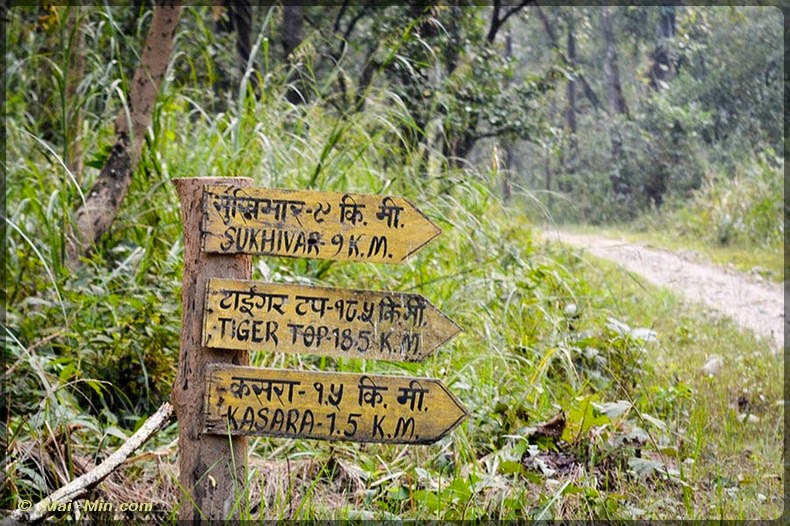 सुखिभार-९ कि.मी.
SUKHIVAR 9 K.M.
टाईगर टप-१८.५ कि.मी.
TIGER TOP-18.5 K.M
कसरा-१.५ कि.मी.
KASARA-1.5 K.M.
© Mai-Min.com